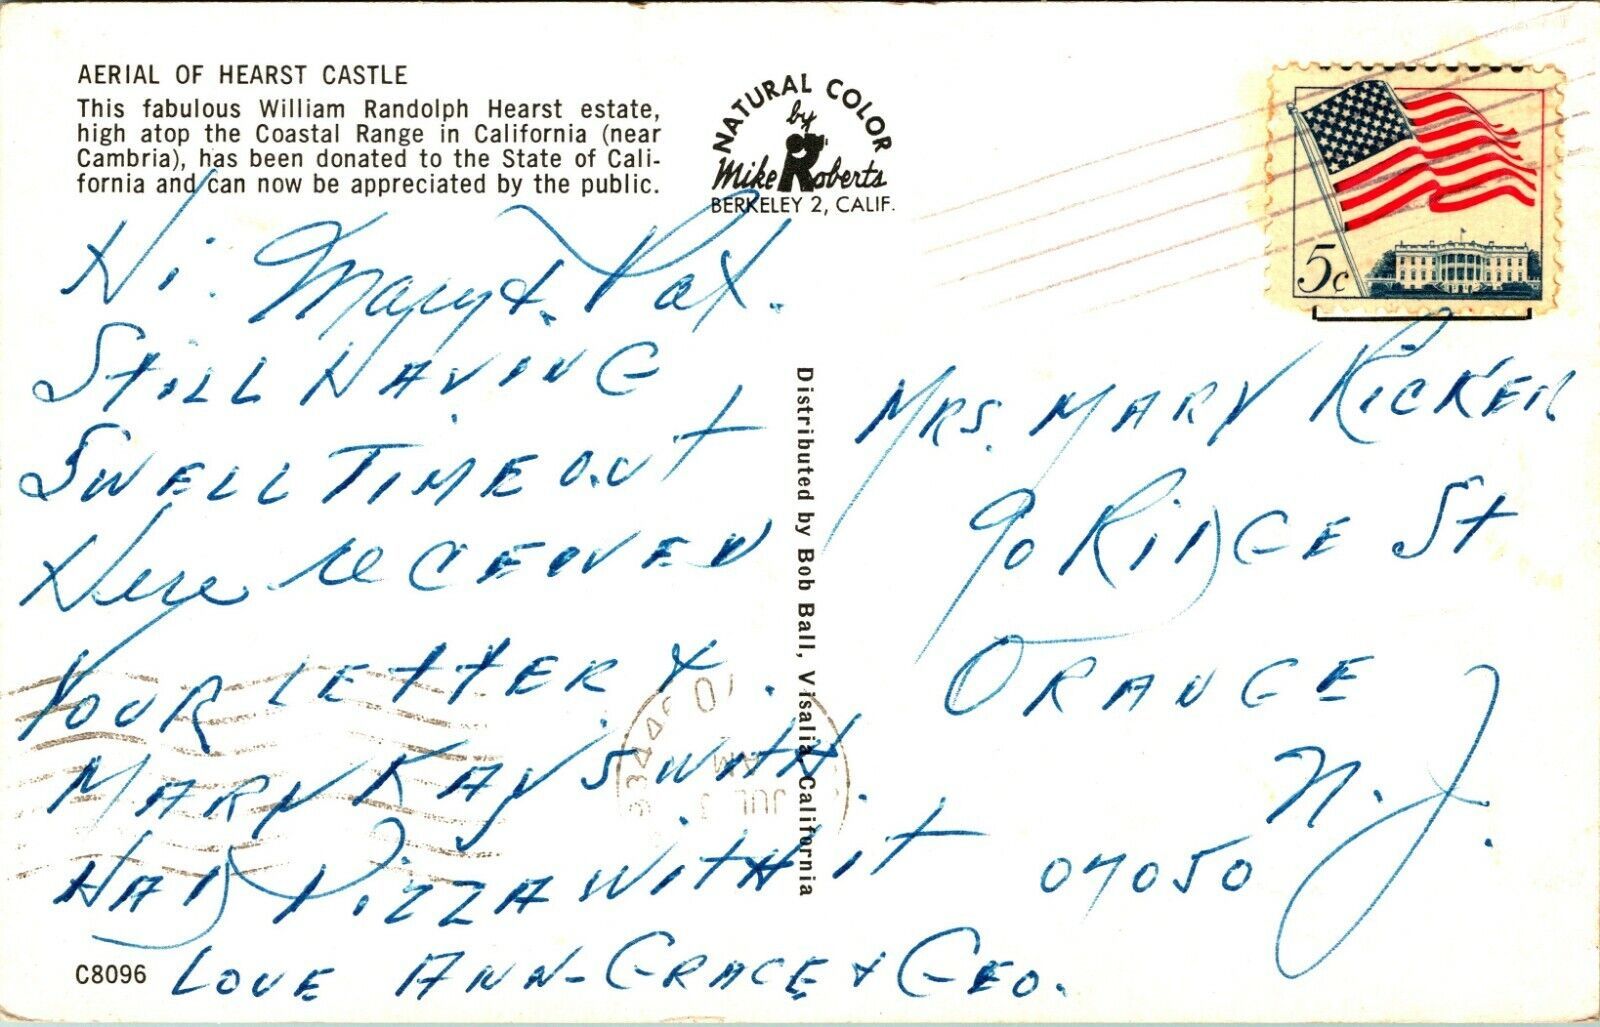 AERIAL OF HEARST CASTLE
This fabulous William Randolph Hearst estate,
high atop the Coastal Range in California (near
Cambria), has been donated to the State of Cali-
fornia and can now be appreciated by the public.
NATURAL COLOR
by
Mike Roberts
BERKELEY 2, CALIF.
5c
Hi. Mary & Pat.
STILL HAVING
SWELL TIME OUT
Here reCEIVED
YOUR LETTER &
MARY KAYS WITH
HAD PIZZA WITH it
LOVE ANN-GRACE & GEO.
C8096
Distributed by Bob Ball, Visalia, California
MRS. MARY RICKER
90 RIDGE St
ORANGE
N.J.
07050
AM
JUL